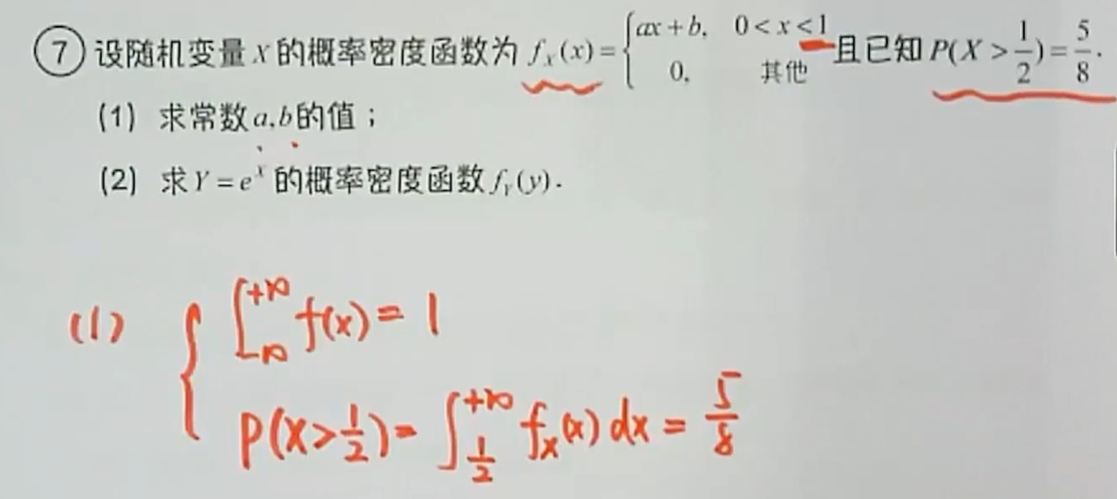 ⑦ 设随机变量 X 的概率密度函数为 f_X(x) = { ax + b, 0 < x < 1 ; 0, 其他 且已知 P(X > 1/2) = 5/8 .
(1) 求常数 a,b 的值；
(2) 求 Y = e^x 的概率密度函数 f_Y(y) .
(1) { ∫_{-∞}^{+∞} f(x) = 1
P(X > 1/2) = ∫_{1/2}^{+∞} f_X(x) dx = 5/8